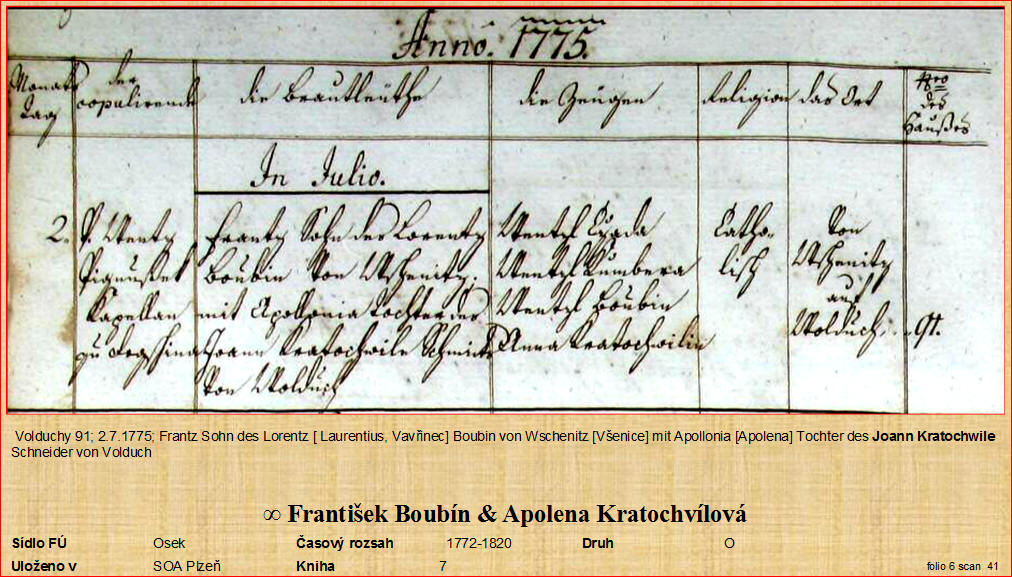 Anno. 1775.
Monats Tag
der copulirende
die Brautleüthe
die Zeugen
Religion
das Ort
Nro des Haußes
In Julio.
2.
P. Wentz
Kapellan
Frantz Sohn des Lorentz
Boubin Von Wschenitz,
mit Apollonia tochter des
Joann Kratochwile Schmidt
Von Wolduch
Wentzl
Wentzl Kumbera
Wentzl Boubin
Anna Kratochwilin
Catho-
lisch
Von
Wschenitz
auf
Wolduch.
91.
Volduchy 91; 2.7.1775; Frantz Sohn des Lorentz [ Laurentius, Vavřinec] Boubin von Wschenitz [Všenice] mit Apollonia [Apolena] Tochter des Joann Kratochwile
Schneider von Volduch
∞ František Boubín & Apolena Kratochvílová
Sídlo FÚ Osek Časový rozsah 1772-1820 Druh O
Uloženo v SOA Plzeň Kniha 7 folio 6 scan 41